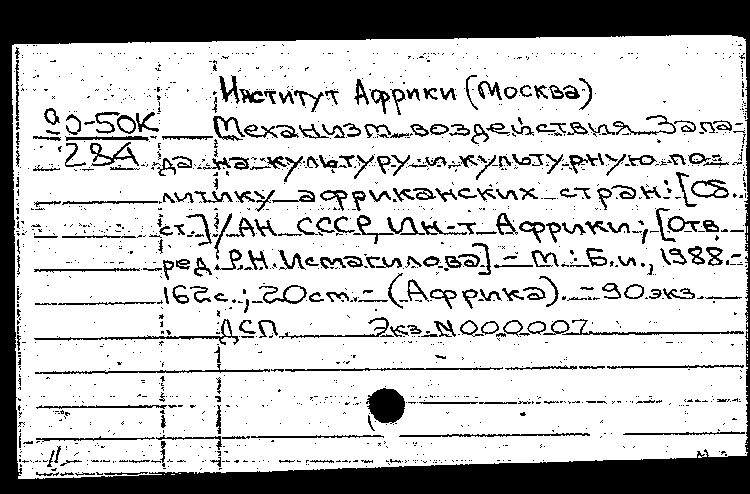 Институт Африки (Москва)
а 0-50К
28А
Механизм воздействия Запа-
да на культуру и культурную по-
литику африканских стран: [Сб.
ст.] / АН СССР, Ин-т Африки; [Отв.
ред. Р.Н. Исмагилова]. - М.: Б.и., 1988.-
162с.; 20см. - (Африка). - 90экз.
ДСП. Экз. N 000007
11